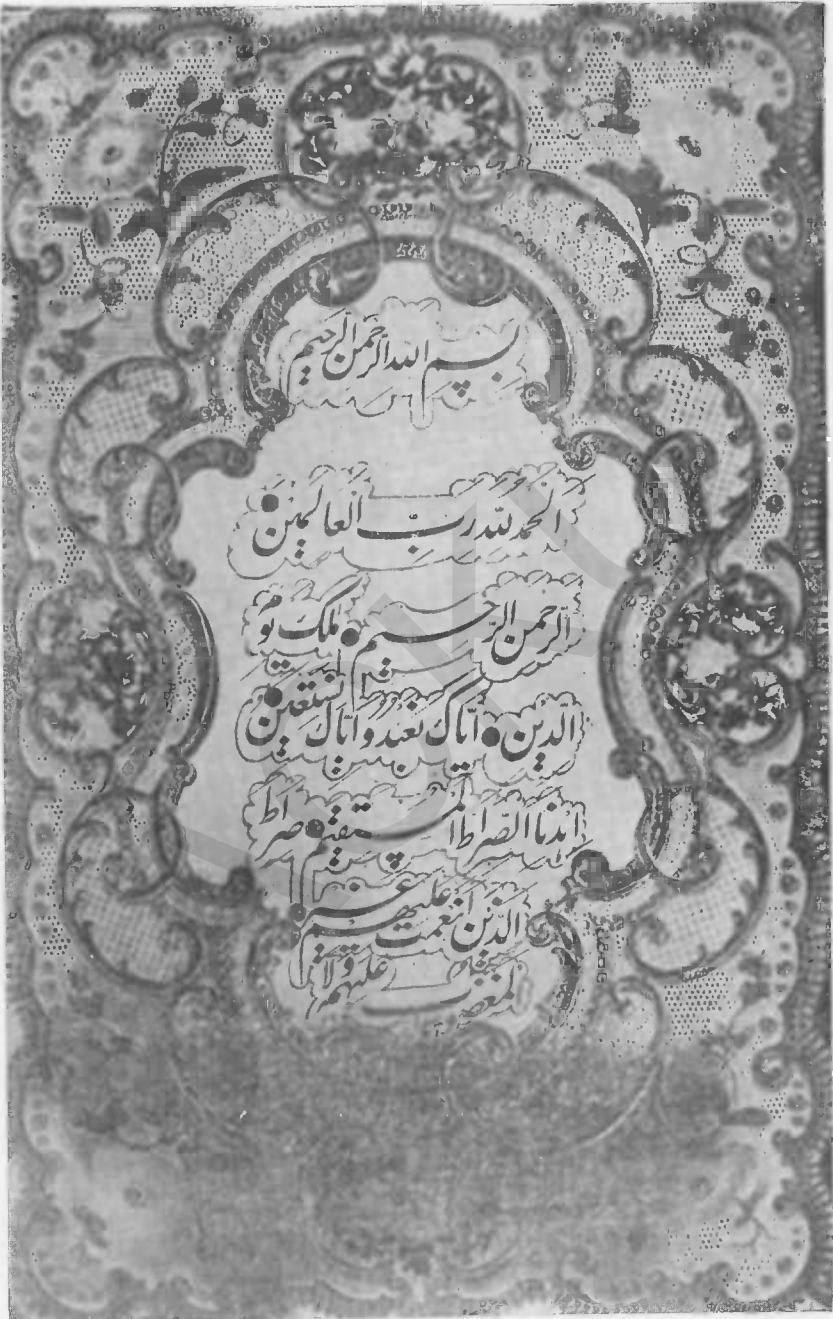 بسم الله الرحمن الرحيم
الحمد لله ربّ العالمين
الرحمن الرحيم ملك يوم
الدّين اياك نعبد و اياك نستعين
اهدنا الصّراط المستقيم صراط
الذين انعمت عليهم غير
المغضوب عليهم ولا